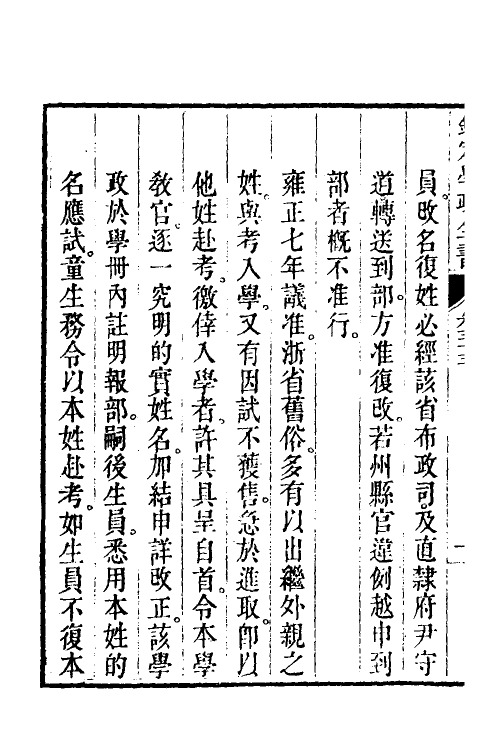 員改名復姓必經該省布政司及直隸府尹守
道轉送到部方准復改若州縣官違例越申到
部者概不准行
雍正七年議准浙省舊俗多有以出繼外親之
姓與考入學又有因試不獲售急於進取卽以
他姓赴考徼倖入學者許其具呈自首令本學
教官逐一究明的實姓名加結申詳改正該學
政於學冊內註明報部嗣後生員悉用本姓的
名應試童生務令以本姓赴考如生員不復本